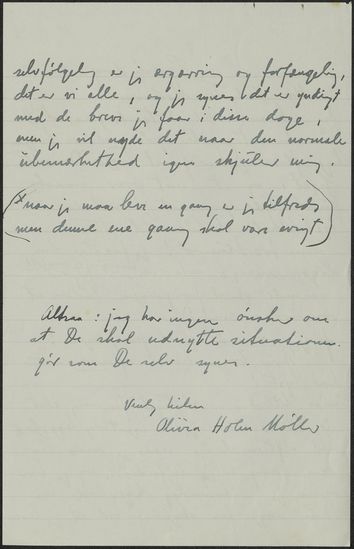 selvfølgelig er jeg ærgærrig og forfængelig,
det er vi alle, og jeg synes det er yndigt
med de breve jeg faar i disse dage,
men jeg vil nyde det naar den normale
ubemærkethed igen skjuler mig.
(x naar jeg maa leve en gang er jeg tilfreds
men denne ene gang skal vare evigt)
Altsaa: jeg har ingen ønsker om
at De skal udnytte situationen.
gør som De selv synes.
Venlig hilsen
Olivia Holm Møller